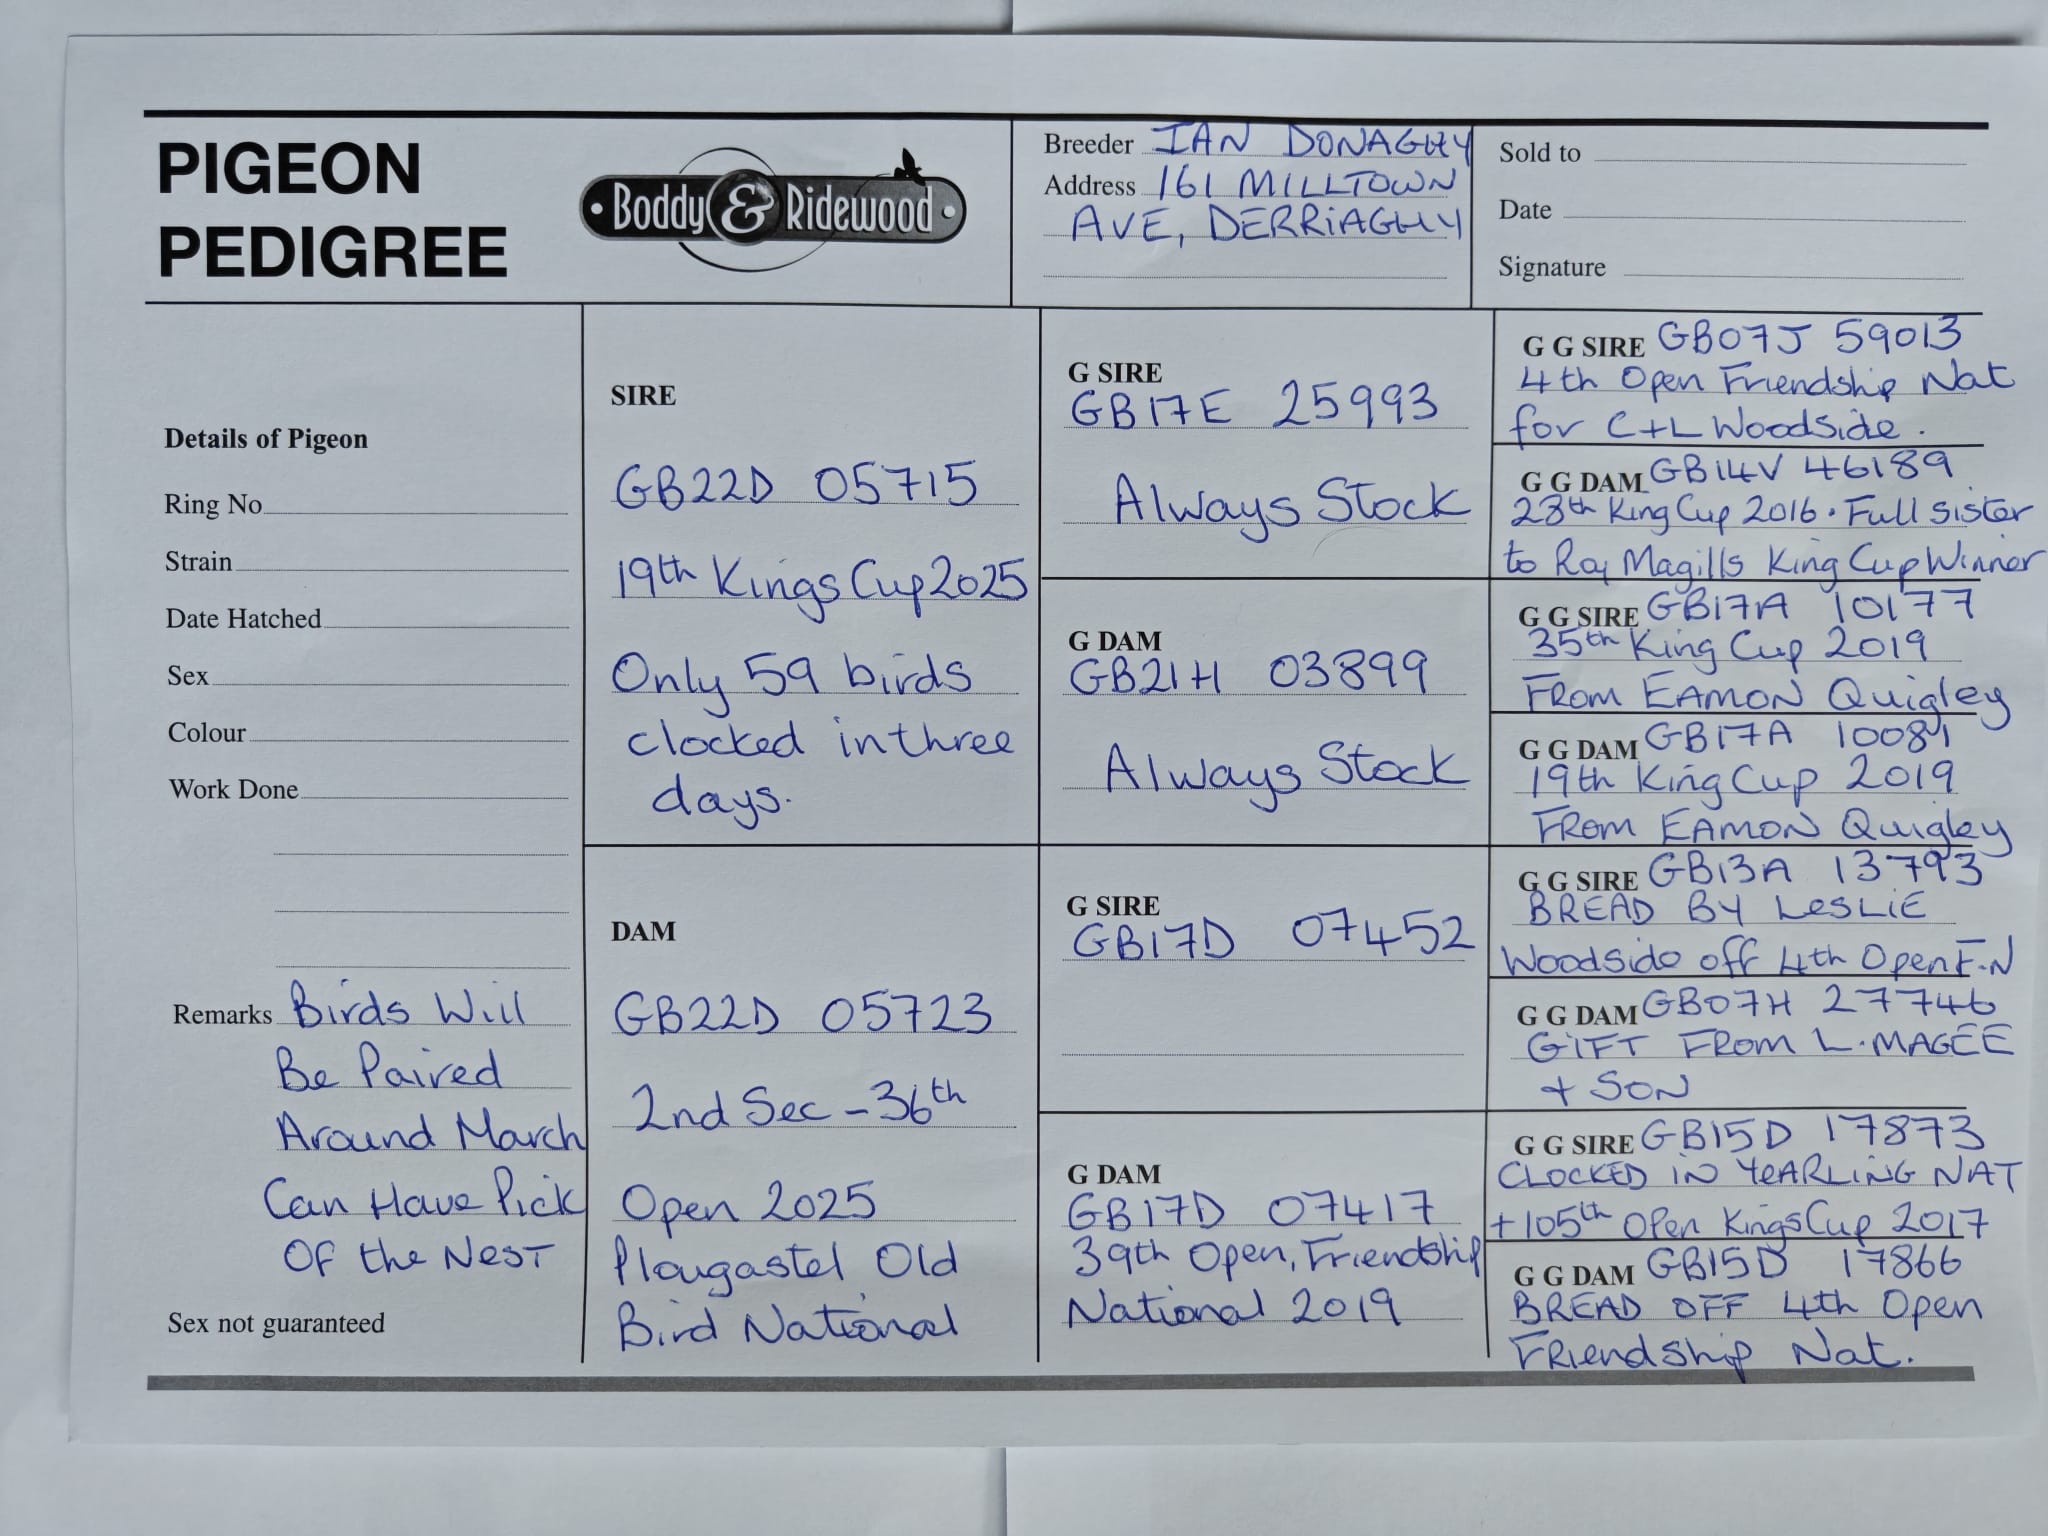 PIGEON
PEDIGREE
Boddy & Ridewood
Breeder IAN DONAGHY
Address 161 MILLTOWN
AVE, DERRIAGHY
Sold to
Date
Signature
Details of Pigeon
Ring No
Strain
Date Hatched
Sex
Colour
Work Done
Remarks Birds Will
Be Paired
Around March
Can Have Pick
Of the NEST
Sex not guaranteed
SIRE
GB22D 05715
19th Kings Cup 2025
Only 59 birds
clocked in three
days.
DAM
GB22D 05723
2nd Sec - 36th
Open 2025
Plougastel Old
Bird National
G SIRE
GB17E 25993
Always Stock
G DAM
GB21H 03899
Always Stock
G SIRE
GB17D 07452
G DAM
GB17D 07417
39th Open, Friendship
National 2019
G G SIRE GB07J 59013
4th Open Friendship Nat
for C+L Woodside.
G G DAM GB14V 46189
28th King Cup 2016. Full sister
to Roy Magills King Cup Winner
G G SIRE GB17A 10177
35th King Cup 2019
FROM EAMON Quigley
G G DAM GB17A 10081
19th King Cup 2019
FROM EAMON Quigley
G G SIRE GB13A 13793
BREAD BY LESLIE
Woodside off 4th Open F.N
G G DAM GB07H 27746
GIFT FROM L.MAGEE
+ SON
G G SIRE GB15D 17873
CLOCKED IN YEARLING NAT
+105th Open Kings Cup 2017
G G DAM GB15D 17866
BREAD OFF 4th Open
Friendship Nat.